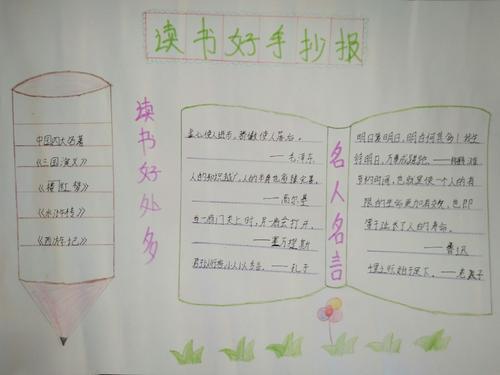 读书好手抄报
中国四大名著
《三国演义》
《楼红梦》
《水浒传》
《西游记》
读书好处多
虚心使人进步，骄傲使人落后。
——毛泽东
人的知识越广，人的本身也愈臻完善。
——高尔基
当一扇门关上时，另一扇会打开。
——塞万提斯
——孔子
名人名言
明日复明日，明日何其多！我生
待明日，万事成蹉跎。——
节约时间，也就是使一个人的有
限的生命更加有效，也即
等于延长了人的寿命。
——鲁迅
千里之行始于足下。——老子